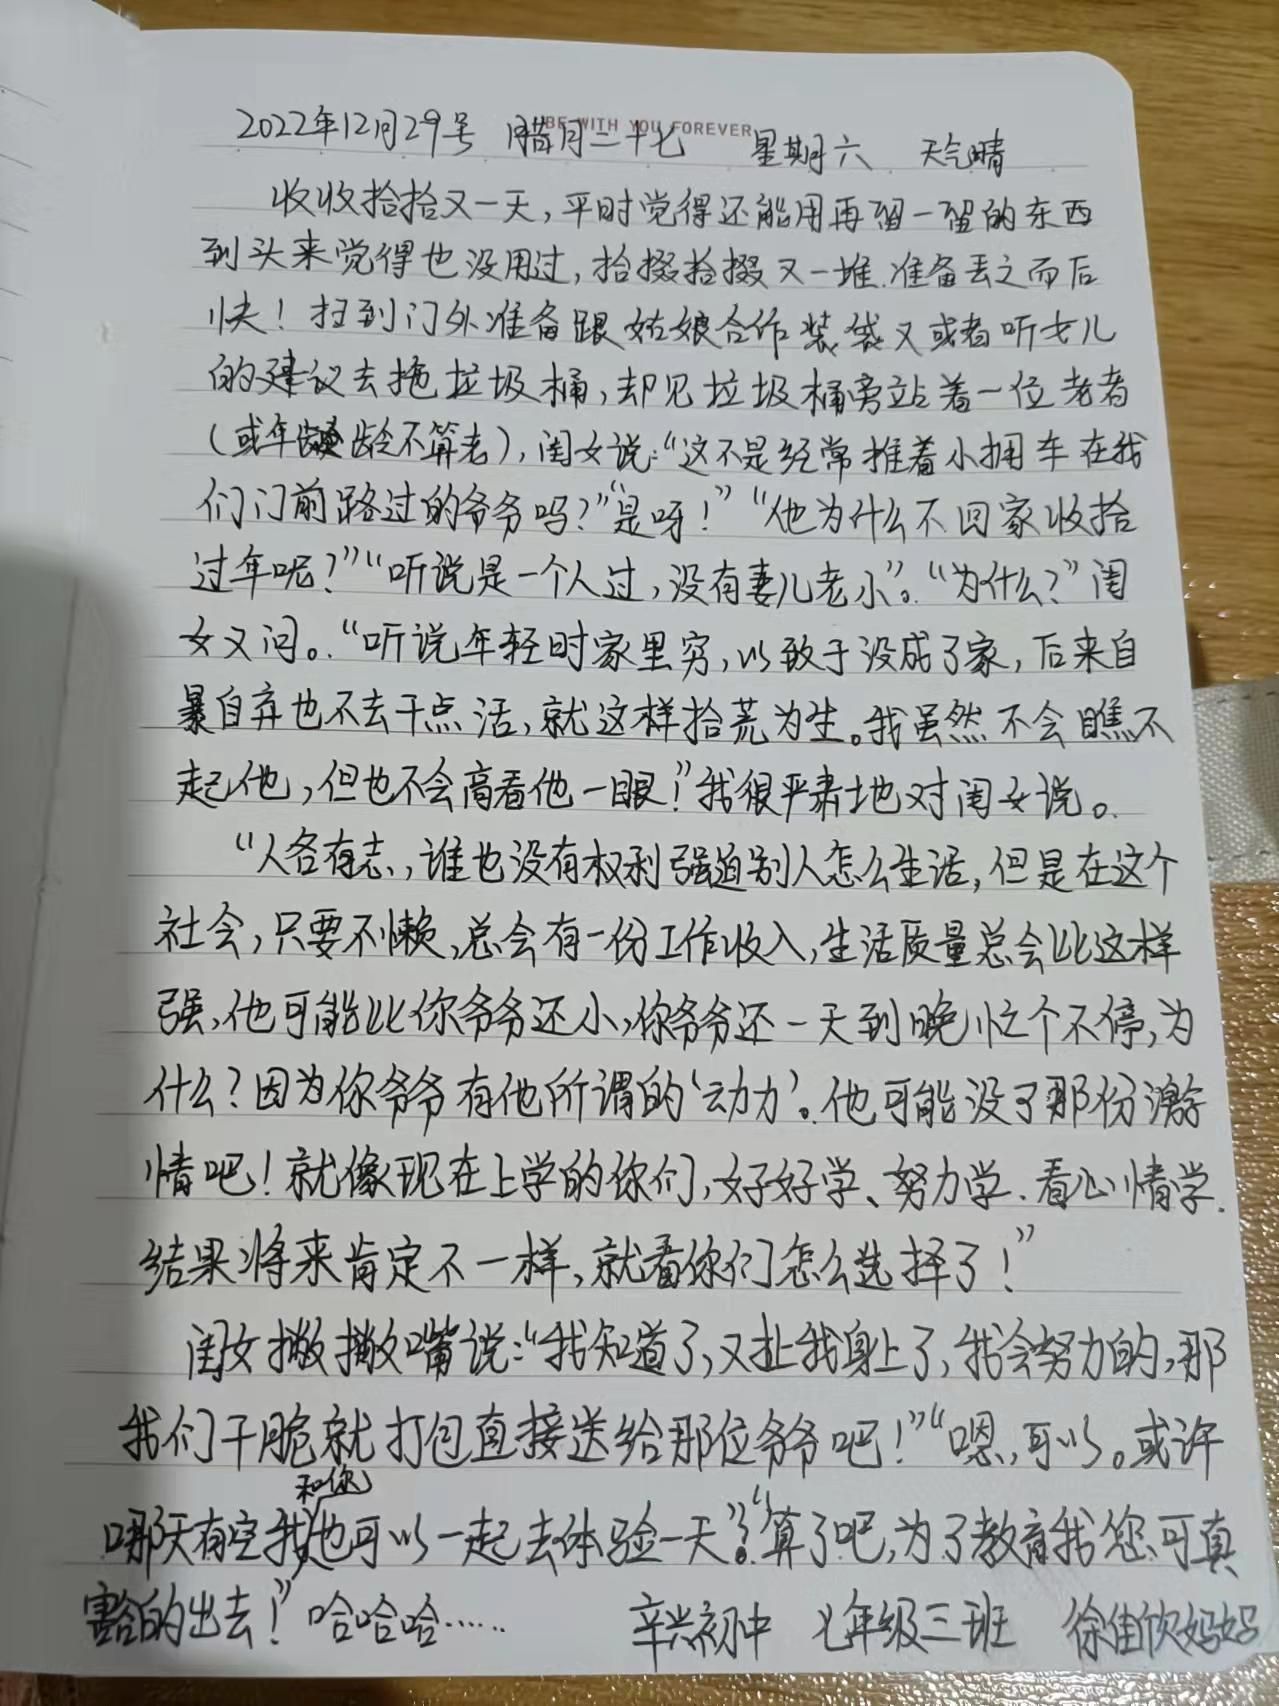 BE WITH YOU FOREVER
2022年12月29号 腊月二十七 星期六 天气晴
收收拾拾又一天,平时觉得还能用再留一留的东西
到头来觉得也没用过,拾掇拾掇又一堆.准备丢之而后
快!扫到门外准备跟姑娘合作装袋又或者听女儿
的建议去拖垃圾桶,却见垃圾桶旁站着一位老者
(或年龄不算老),闺女说:“这不是经常推着小拥车在我
们门前路过的爷爷吗?”“是呀!”“他为什么不回家收拾
过年呢?”“听说是一个人过,没有妻儿老小”。“为什么?”闺
女又问。“听说年轻时家里穷,以致于没成了家,后来自
暴自弃也不去干点活,就这样拾荒为生。我虽然不会瞧不
起他,但也不会高看他一眼!”我很严肃地对闺女说。
“人各有志,谁也没有权利强迫别人怎么生活,但是在这个
社会,只要不懒,总会有一份工作收入,生活质量总会比这样
强,他可能比你爷爷还小,你爷爷还一天到晚忙个不停,为
什么?因为你爷爷有他所谓的‘动力’。他可能没了那份激
情吧!就像现在上学的你们,好好学、努力学.看心情学.
结果将来肯定不一样,就看你们怎么选择了!”
闺女撇撇嘴说:“我知道了,又扯我身上了,我会努力的,那
我们干脆就打包直接送给那位爷爷吧!”“嗯,可以。或许
哪天有空我和你也可以一起去体验一天”?“算了吧,为了教育我您可真
豁的出去!”哈哈哈……
辛兴初中 七年级三班 徐佳欣妈妈